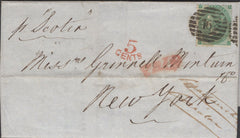 p "Scotia"
5
CENTS
Messrs Grinnell Minturn
& Co
New York